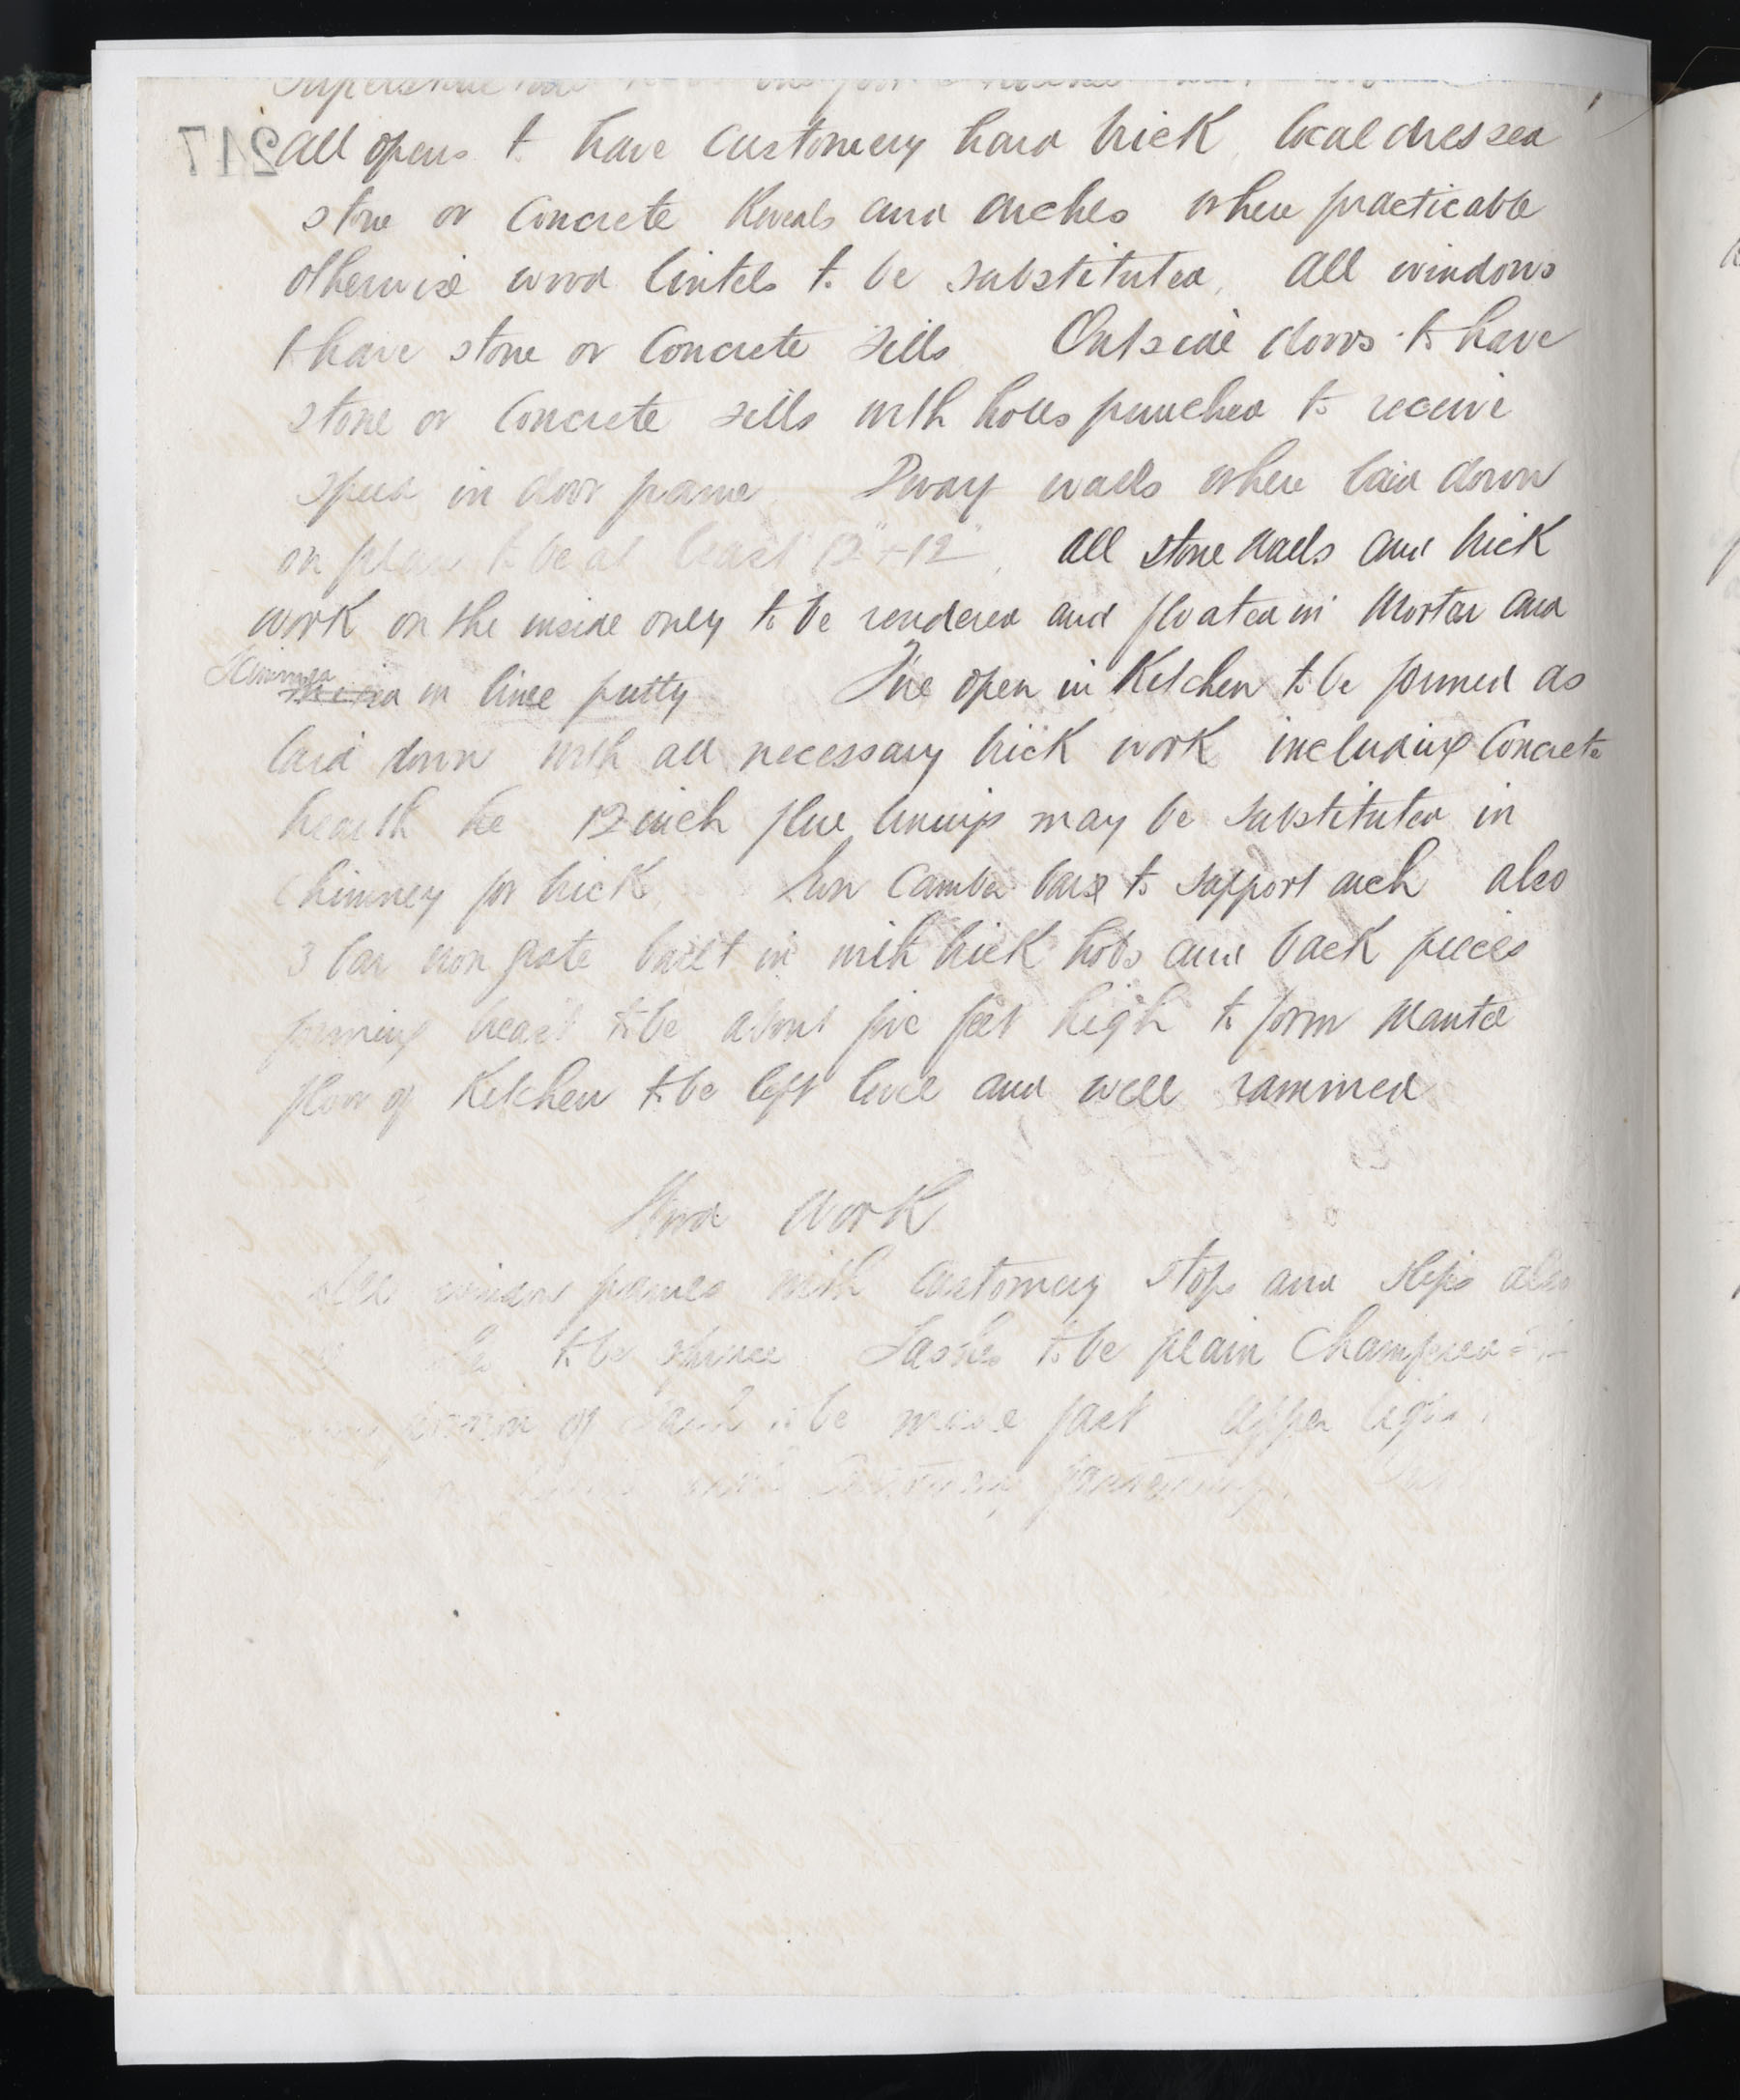 all opens to have customery hard brick, local dressed
stone or Concrete Reveals and arches where practicable
otherwise wood lintels to be substituted, all windows
to have stone or Concrete sills Outside doors to have
stone or Concrete sills with holes punched to receive
in door frame. Dwarf walls where laid down
on plan to be at least 12" + 12", all stone walls and brick
work on the inside only to be rendered and floated in Mortar and
Skimmed in lime putty Fire open in Kitchen to be formed as
laid down with all necessary brick work including Concrete
hearth &c 12 inch flue linings may be substituted in
Chimney for brick. Iron Camber bars to support arch also
3 bar iron grate built in with brick hobs and back pieces
forming breast to be about five feet high to form Mantel
floor of Kitchen to be left level and well rammed
Wood Work
All window frames with customery stops and slips also
to be spruce Sashes to be plain Chamfered
of sash to be made fast upper
with Customery fastenings.
217